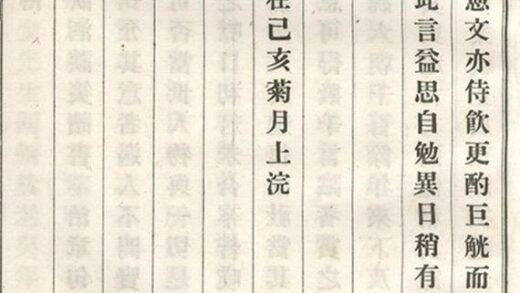 文亦侍飲更酌巨觥而
此言益思自勉異日稍有
在己亥菊月上浣